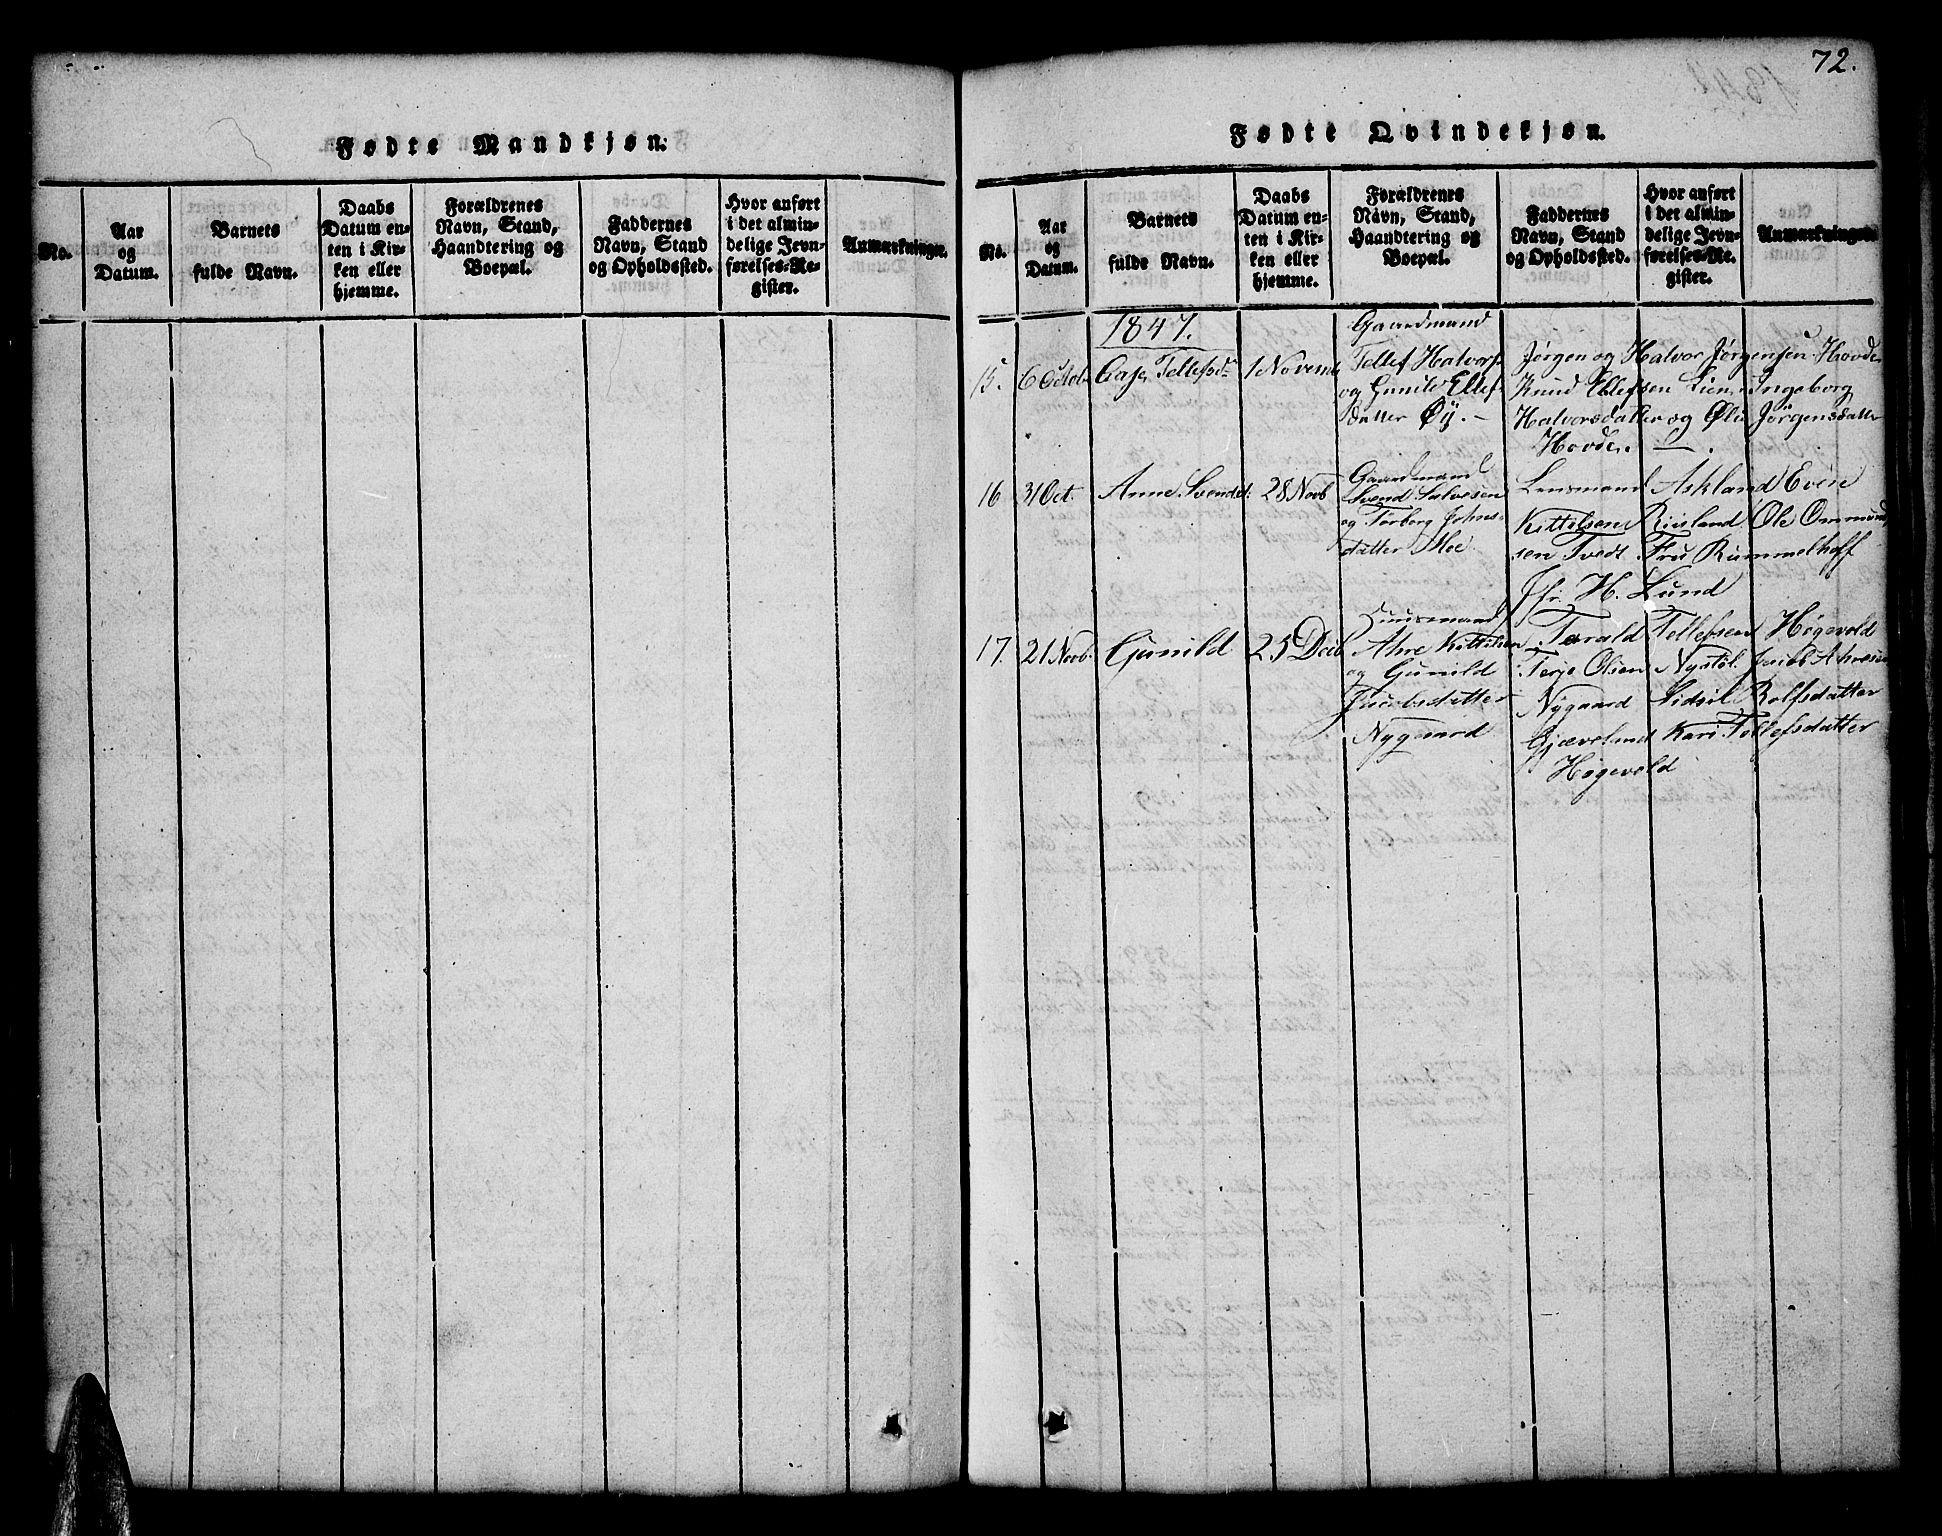 72.
Fødte Mandkjøn.
No.
Aar
og
Datum.
Barnets
fulde Navn.
Daabs
Datum en-
ten i Kir-
ken eller
hjemme.
Forældrenes
Navn, Stand,
Haandtering og
Boepæl.
Faddernes
Navn, Stand
og Opholdssted.
Hvor anført
i det almin-
delige Jevn-
førelses-Re-
gister.
Anmærkninger.
Fødte Qvindekjøn.
No.
Aar
og
Datum.
Barnets
fulde Navn.
Daabs
Datum en-
ten i Kir-
ken eller
hjemme.
Forældrenes
Navn, Stand,
Haandtering og
Boepæl.
Faddernes
Navn, Stand
og Opholdssted.
Hvor anført
i det almin-
delige Jevn-
førelses-Re-
gister.
Anmærkninger
1847.
15.
6 Octob
Tellefsdr
1 Novemb
Gaardmand
Tellef Halvors-
og Gunild Ellefs-
datter Øÿ. -
Jørgen og Halvor Jørgensen Hovde
Knud Ellefsen Lien, Ingeborg
Halvorsdatter og Jørgensdatter
Hovde.
16
31 Oct.
Anne Svendsd:
28 Novb
Gaardmand
Svend Salvesen
og Torborg Johns-
datter Moe
Lensmand Askland Even
Kittilsen Riisland Ole Ommund
sen Tvedt Fru Rummelhoff
Jfr. H. Lund
17.
21 Novb.
Gunild
25 Deb
Huusmand
Ahre Kittilsen
og Gunild
Jacobsdatter
Nygaard
Torald Tellefsen Høgevold
Terje Olsen Nystøl Jacob Ahresen
Nygaard Sidsil Rolfsdatter
Gjæveland Kari Tellefsdatter
Høgevold